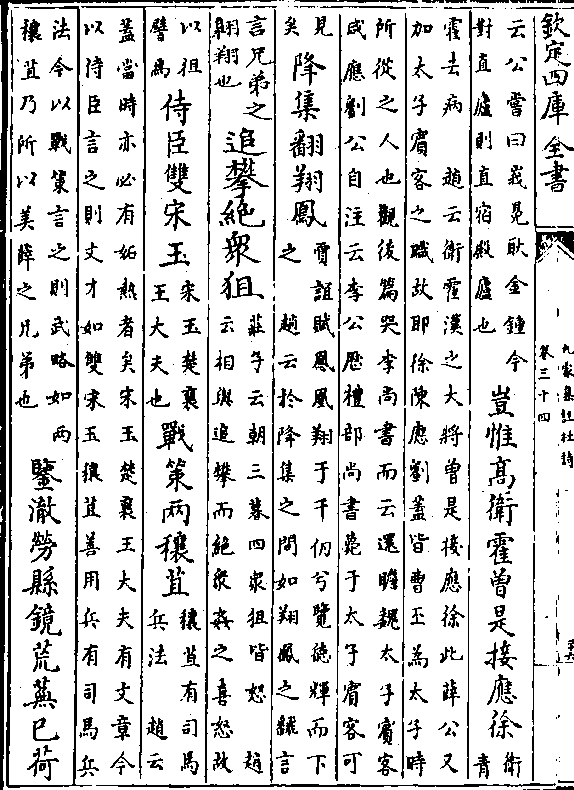 欽定四庫全書
九家集註杜詩
卷三十四
云公嘗曰我見耿金鐘今
對直廬則直宿殿廬也
豈惟髙衛霍曾是接應徐
衛
青
霍去病 趙云衛霍漢之大將曾是接應徐此薛公又
加太子賓客之職故耶徐陳應劉蓋皆曹丕為太子時
所從之人也觀後篇哭李尚書而云還瞻魏太子賓客
減應劉公自注云李公歷禮部尚書薨于太子賓客可
見
矣
降集翻翔鳳
賈誼賦鳳凰翔于千仞兮覽德輝而下
之 趙云於降集之間如翔鳳之翻言
言兄弟之
翱翔也
追攀絶衆狙
莊子云朝三暮四衆狙皆怒 趙
云相與追攀而絶衆姦之喜怒故
以狙
譬焉
侍臣雙宋玉
宋玉楚襄
王大夫也
戰策两穰苴
穰苴有司馬
兵法 趙云
蓋當時亦必有妬熱者矣宋玉楚襄王大夫有文章今
以侍臣言之則丈才如雙宋玉穰苴善用兵有司馬兵
法今以戰策言之則武略如两
穰苴乃所以美薛之兄弟也
鑒澈勞縣鏡荒蕪已荷